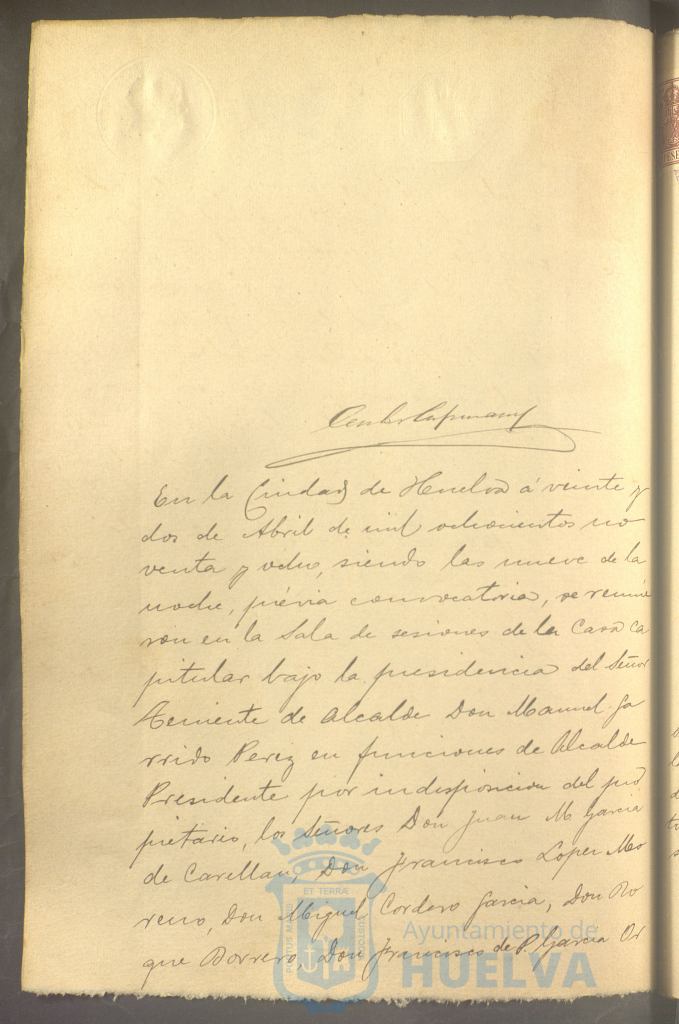 En la Ciudad de Huelva á veinte y
dos de Abril de mil ochocientos no
venta y ocho, siendo las nueve de la
noche, prévia convocatoria, se reunie
ron en la Sala de sesiones de la Casa Ca
pitular bajo la presidencia del Señor
Teniente de Alcalde Don Manuel Ga
rrido Perez en funciones de Alcalde
Presidente por indisposicion del pro
pietario, los Señores Don Juan M. Garcia
de Don Francisco Lopez Mo
reno, Don Miguel Cordero Garcia, Don Ro
que Borrero, Don Francisco de P. Garcia Or
PORTUS MARIS ET TERRÆ CUSTODIA
Ayuntamiento de
HUELVA